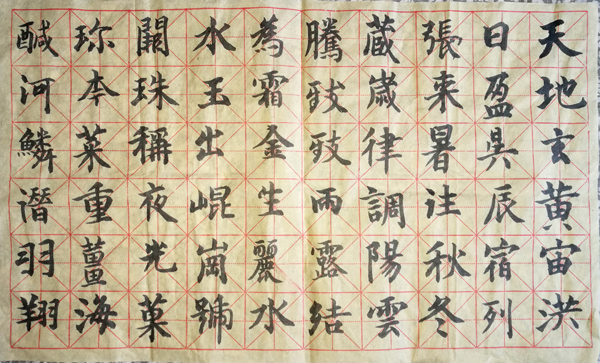 天地玄黃宙洪
日盈昃辰宿列
張来暑往秋冬
蔵歲律調陽雲
騰致致雨露結
為霜金生麗水
水玉出崐崗號
闕珠稱夜光菓
珎李菜重薑海
醎河鱗潛羽翔